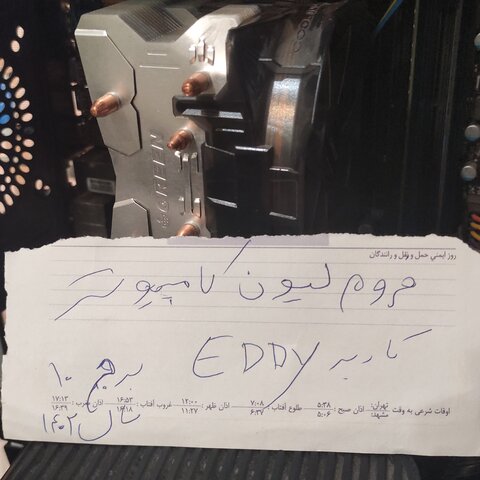 COOLING
GREEN
روز ایمنی حمل و نقل و رانندگان
فروم لیون کامپیوتر
کاربر EDDY
برج ۱۰
سال ۱۴۰۲
اوقات شرعی به وقت تهران: مشهد: اذان صبح: ۵:۳۸ ۵:۰۶ طلوع آفتاب: ۷:۰۸ ۶:۳۷ اذان ظهر: ۱۲:۰۰ ۱۱:۲۷ غروب آفتاب: ۱۶:۵۲ ۱۶:۱۸ اذان مغرب: ۱۷:۱۳ ۱۶:۳۹